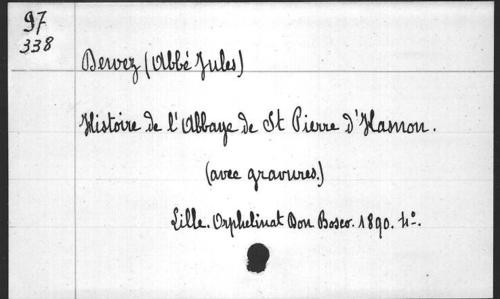 97
338
Dewez (Abbé Jules)
Histoire de l'Abbaye de St Pierre d'Hasnon.
(avec gravures.)
Lille. Orphelinat Don Bosco. 1890. 4°.